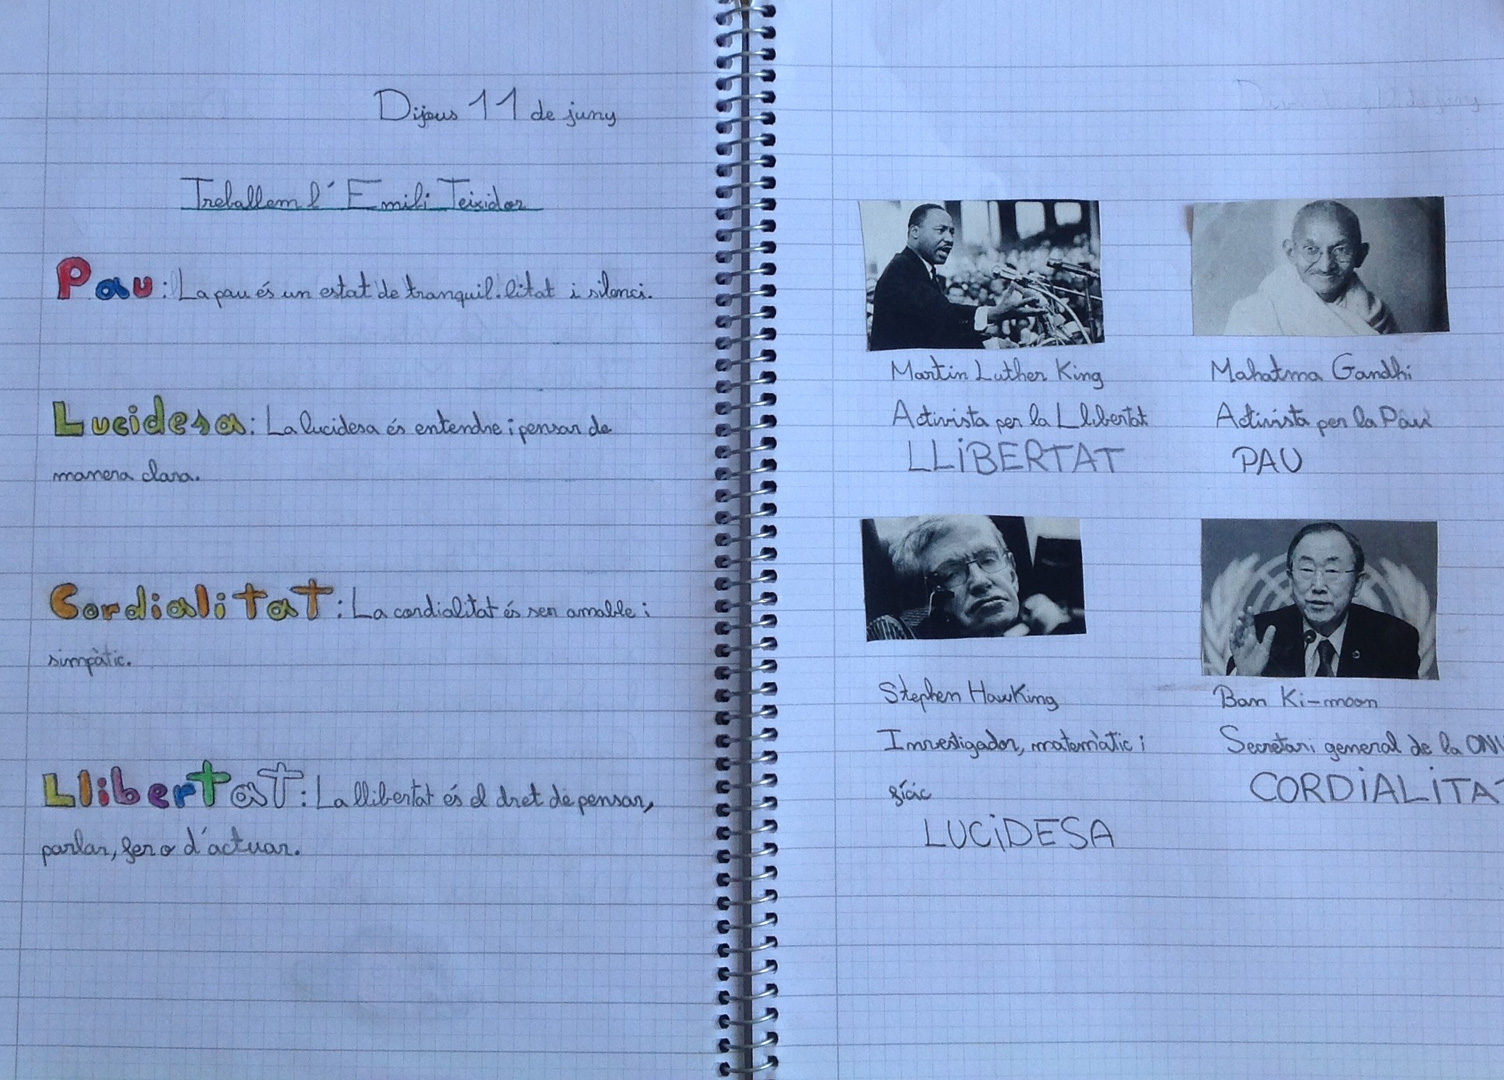 Dijous 11 de juny
Treballem l'Emili Teixidor
Pau: La pau és un estat de tranquil.litat i silenci.
Lucidesa: La lucidesa és entendre i pensar de
manera clara.
Cordialitat: La cordialitat és ser amable i
simpàtic.
Llibertat: La llibertat és el dret de pensar,
parlar, fer o d'actuar.
Martin Luther King
Activista per la Llibertat
LLIBERTAT
Mahatma Gandhi
Activista per la Pau
PAU
Stephen Hawking
Investigador, matemàtic i
físic
LUCIDESA
Ban Ki-moon
Secretari general de la ONU
CORDIALITAT